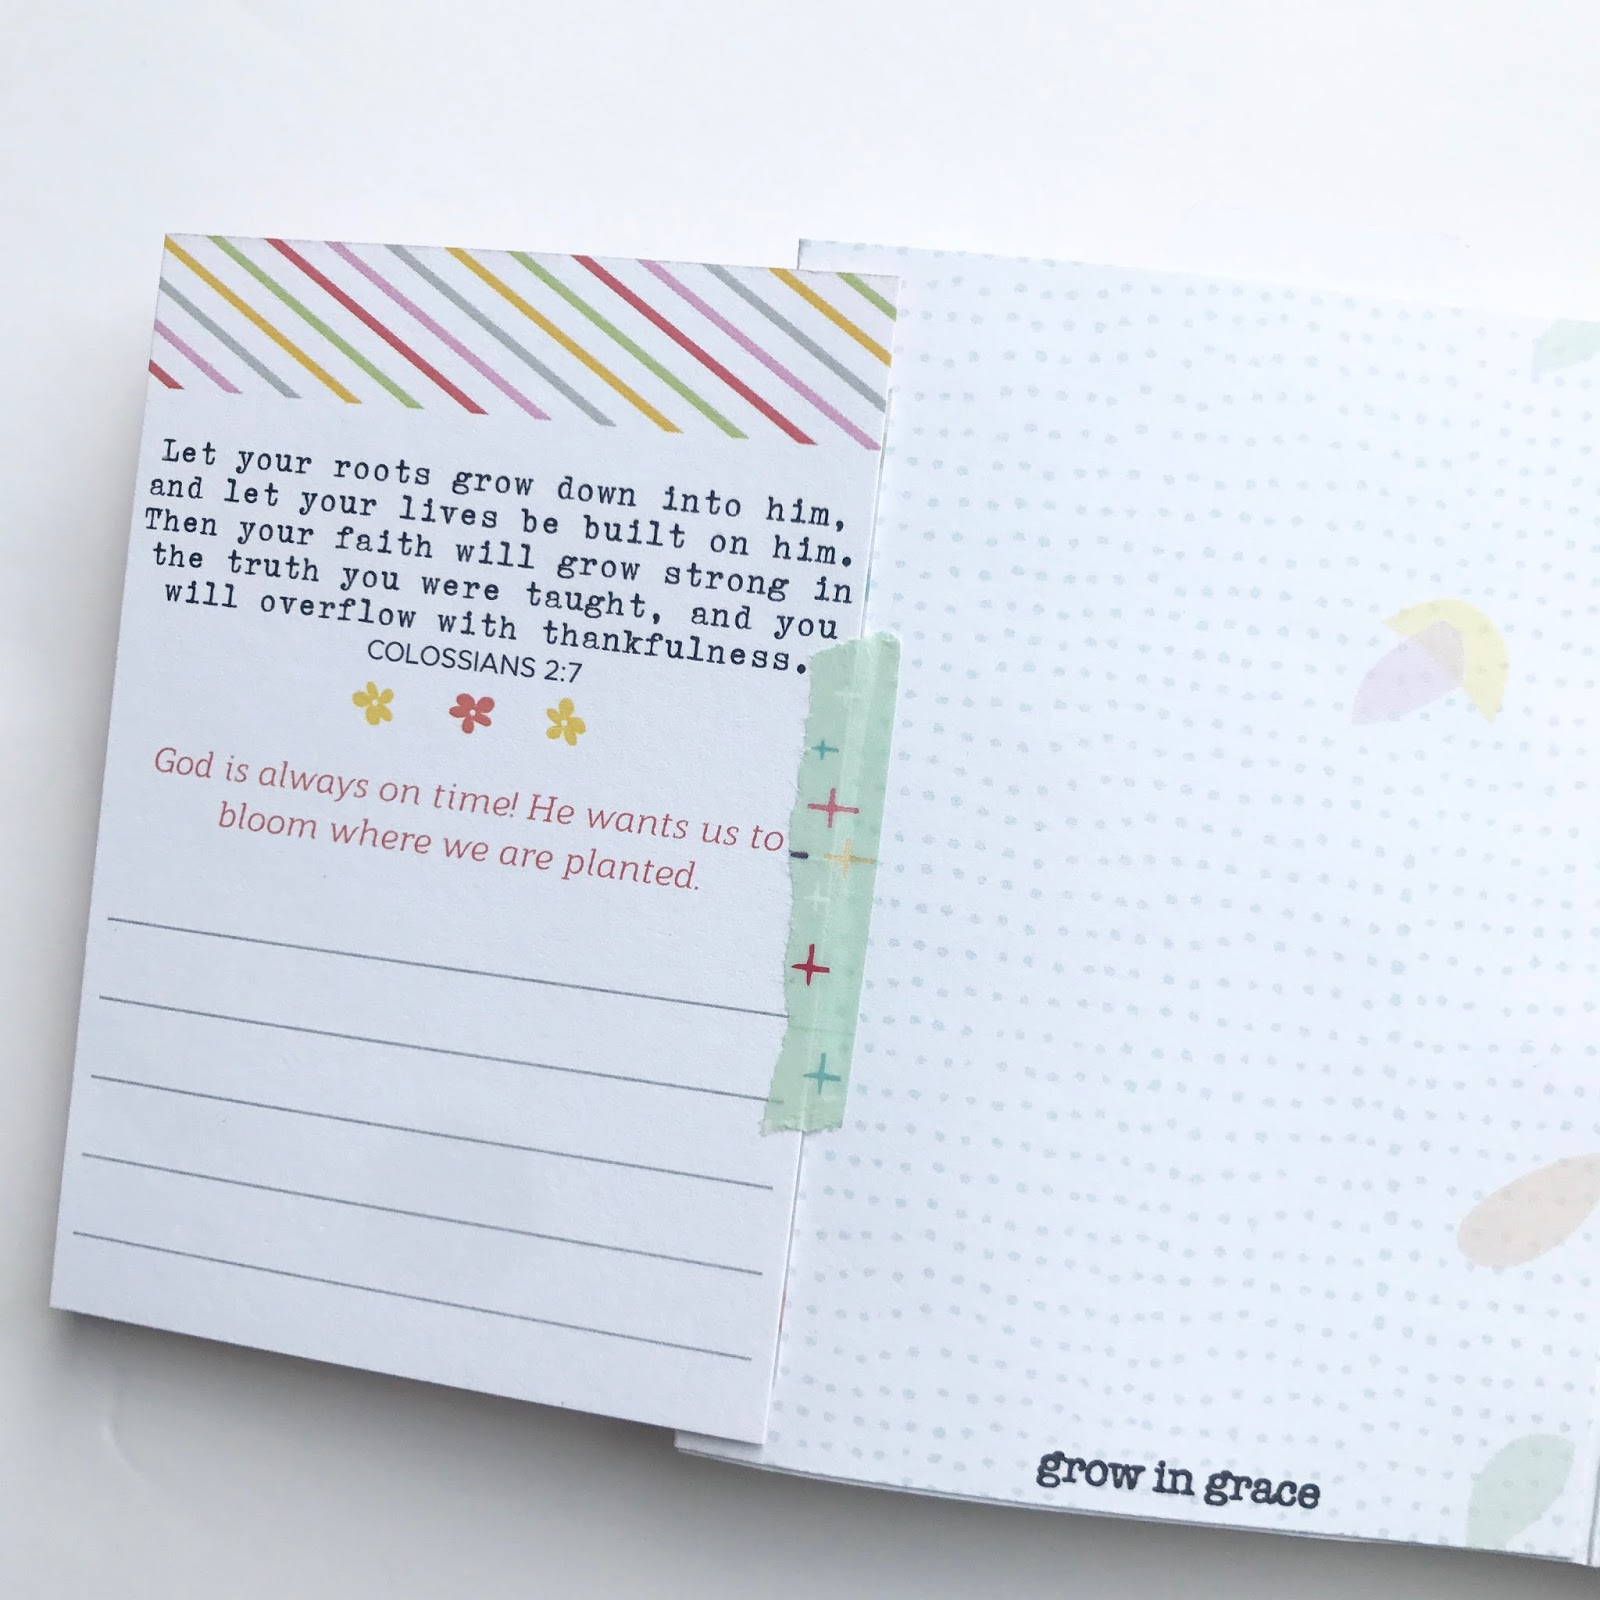 Let your roots grow down into him,
and let your lives be built on him.
Then your faith will grow strong in
the truth you were taught, and you
will overflow with thankfulness.
COLOSSIANS 2:7
God is always on time! He wants us to
bloom where we are planted.
grow in grace